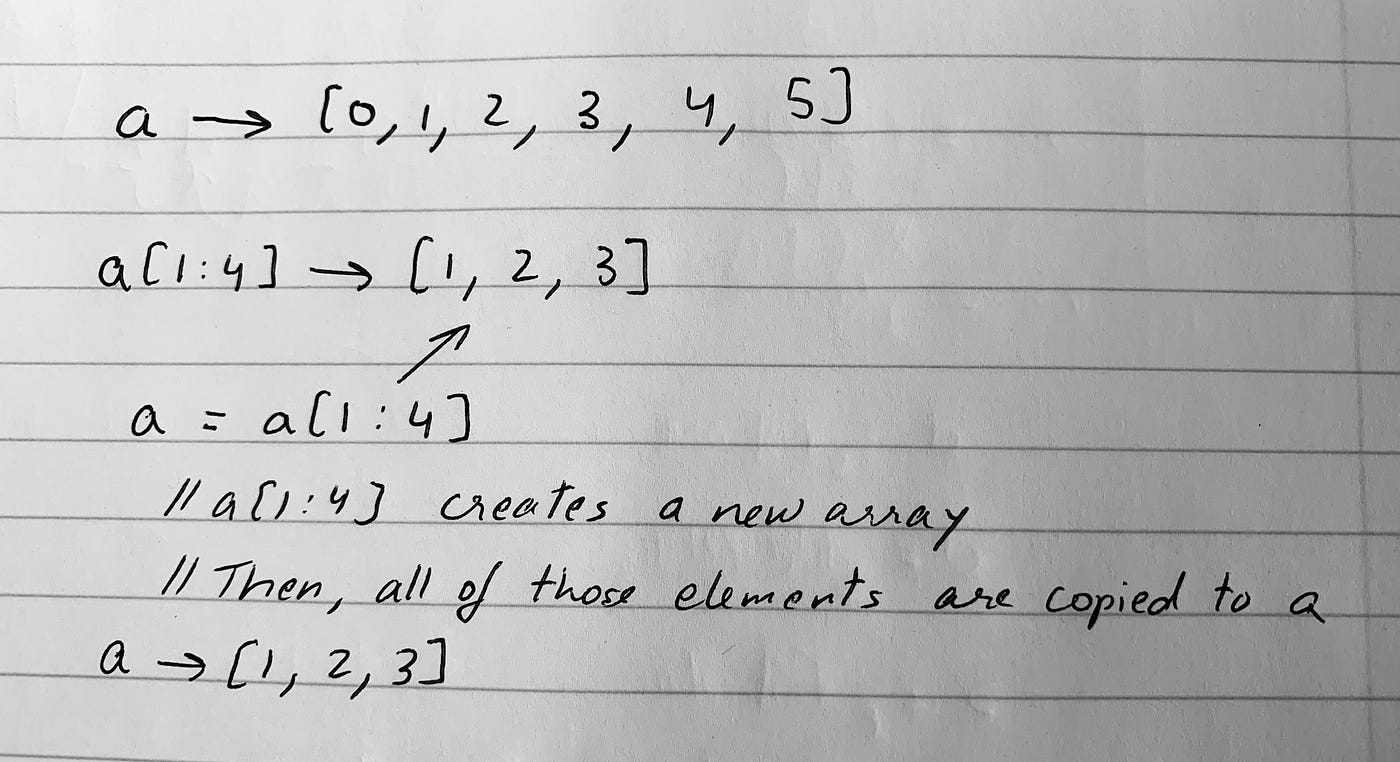 a → [0, 1, 2, 3, 4, 5]
a[1:4] → [1, 2, 3]
a = a[1:4]
//a[1:4] creates a new array
//Then, all of those elements are copied to a
a → [1, 2, 3]